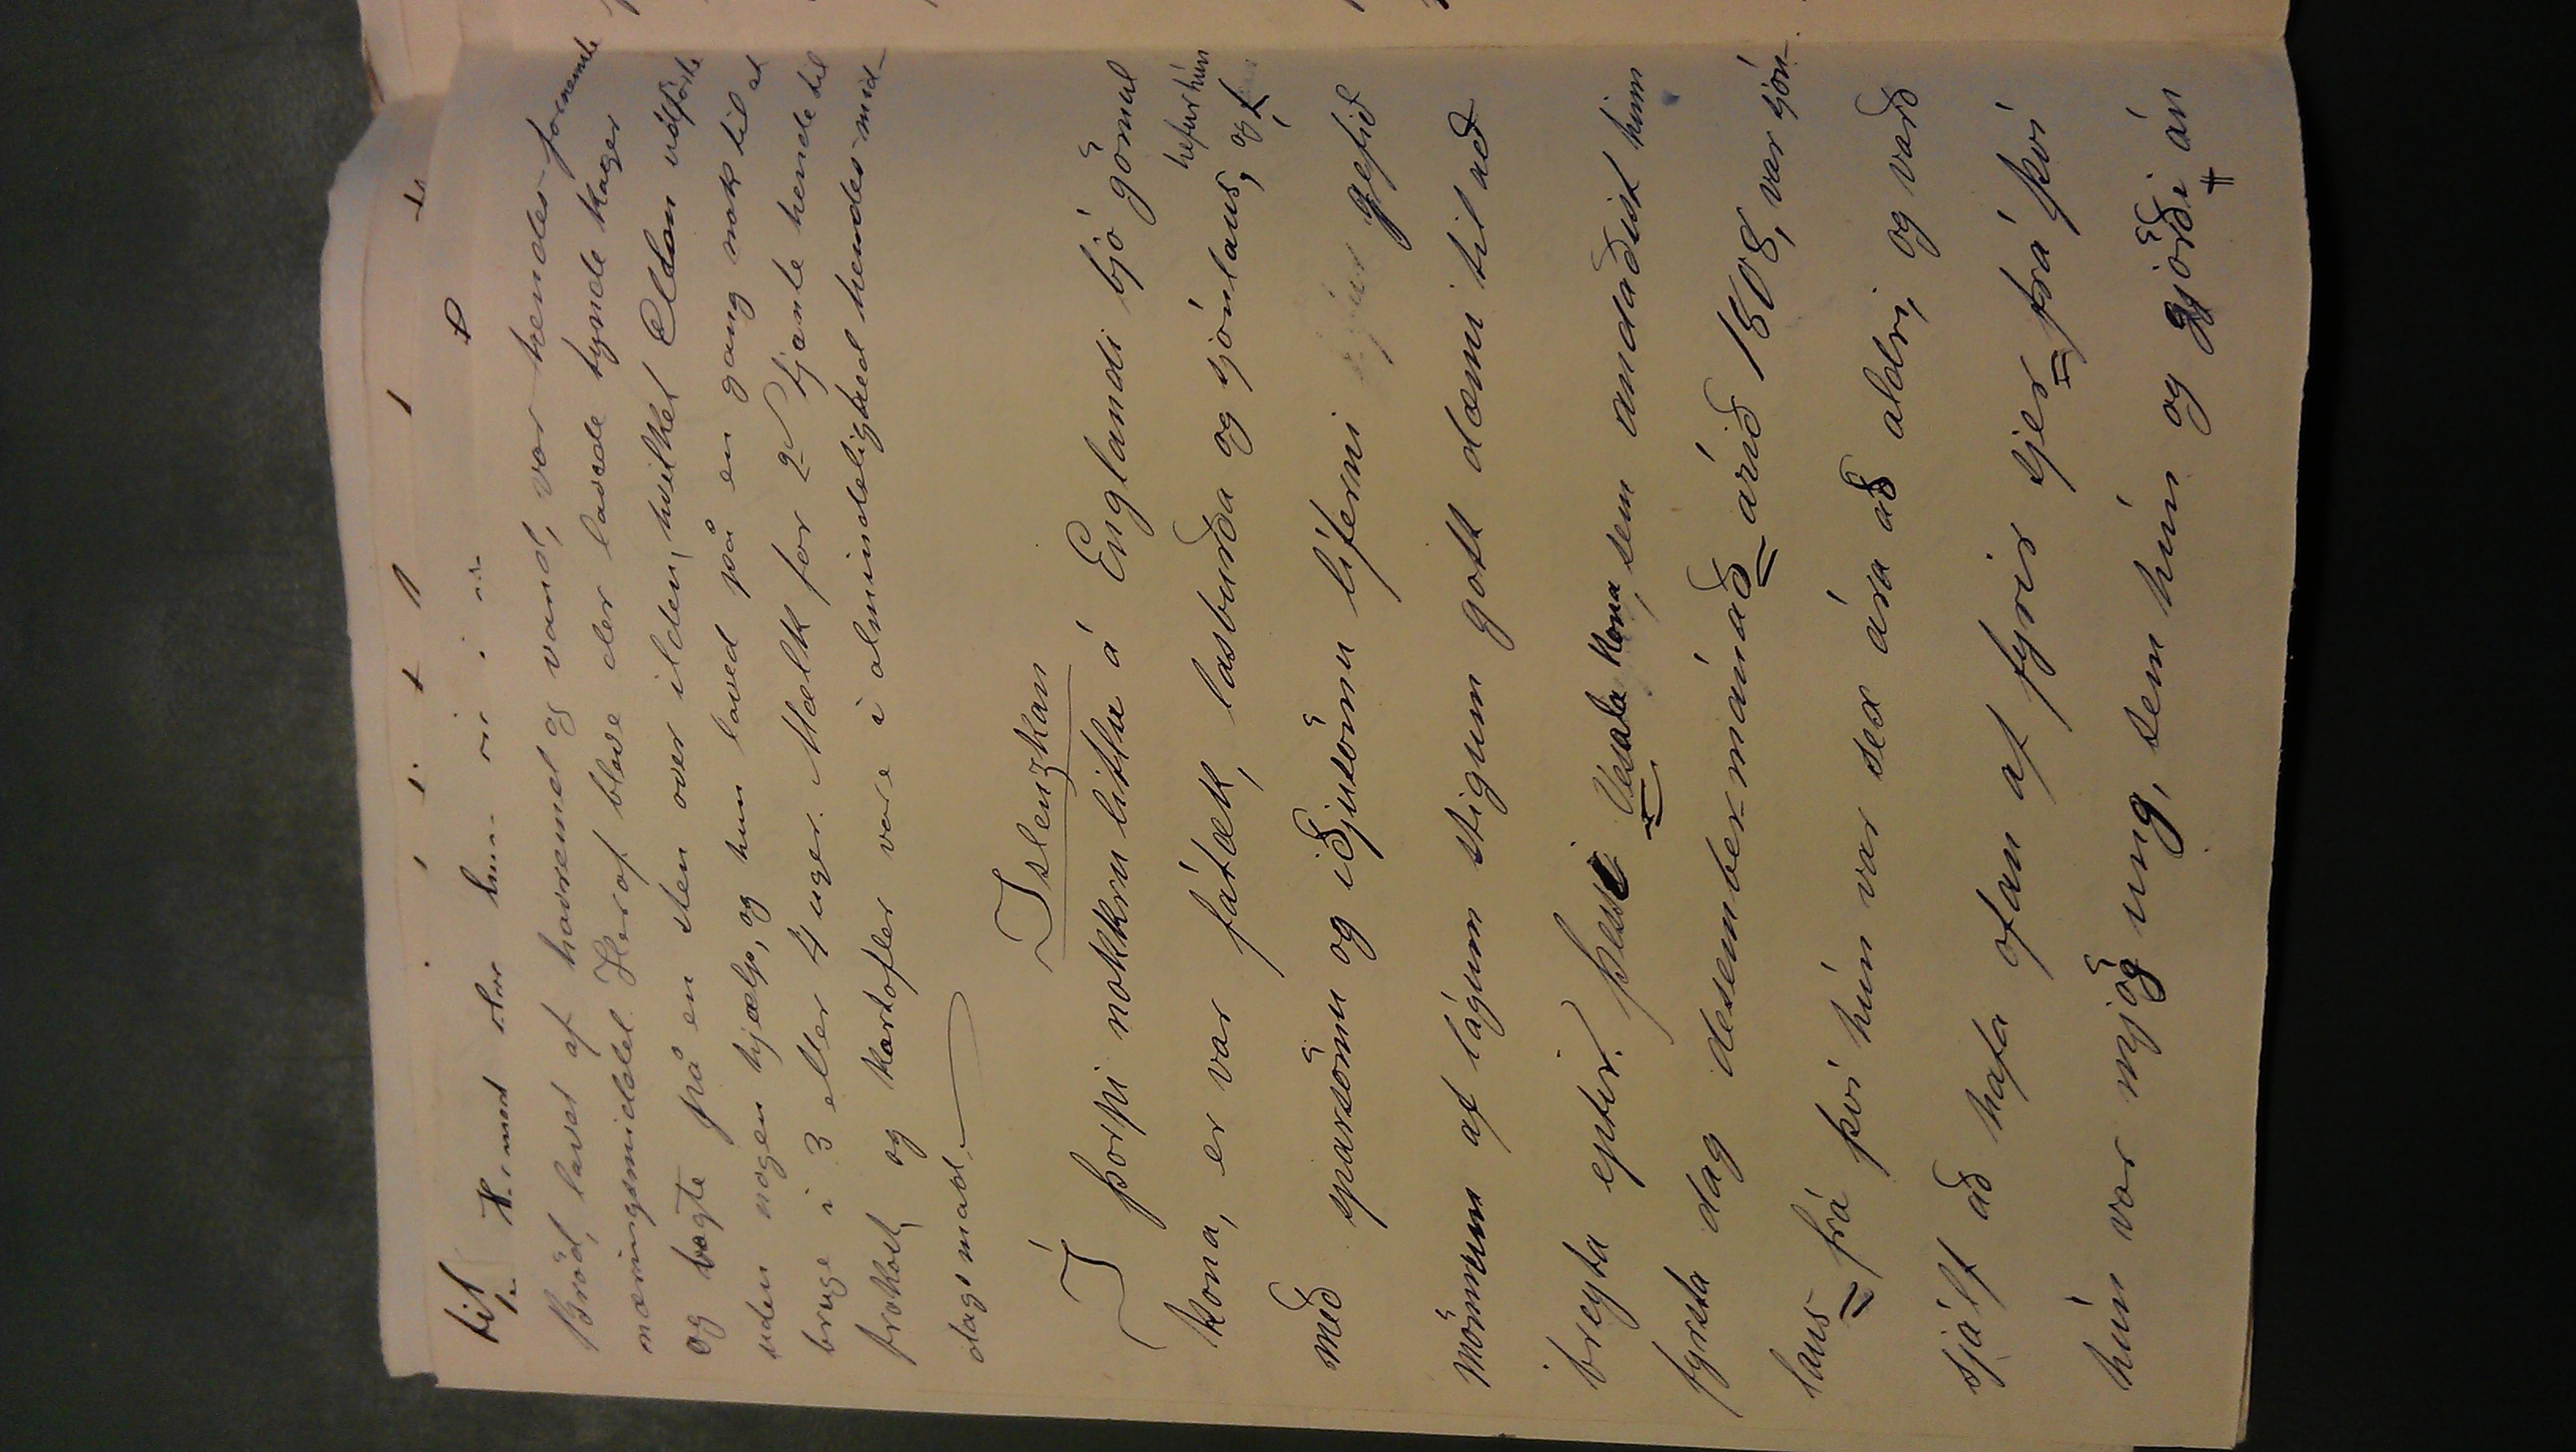 Brød, lavet af havremel og vand, var hendes fornemste
næringsmiddel. Heraf blève der lavede tynde kager
og bagte på en sten over ilden, hvilket Eldon udførte
uden nogen hjælp, og hun laved på en gang nok til at
bruge i 3 eller 4 uger. Mælk for 2 d tjente hende til
frokost, og kartofler vare i almindelighed hendes mid-
dagsmad.
Islenzkan
Í þorpi nokkru litlu á Englandi bjó gömul
kona, er var fátæk, lasburða og sjónlaus, og hefur hún
með sparsömu og iðjusömu líferni gefið
mönnum af lágum stigum gott dæmi til að
breyta eptir. Þessi Vesala kona, sem andaðist hinn
fyrsta dag desember-mánað árið 1808, var sjón-
laus frá því hún var sex ára að aldri, og varð
sjálf að hafa ofan af fyrir sjer frá því
hún var mjög ung, sem hún og gjörði án